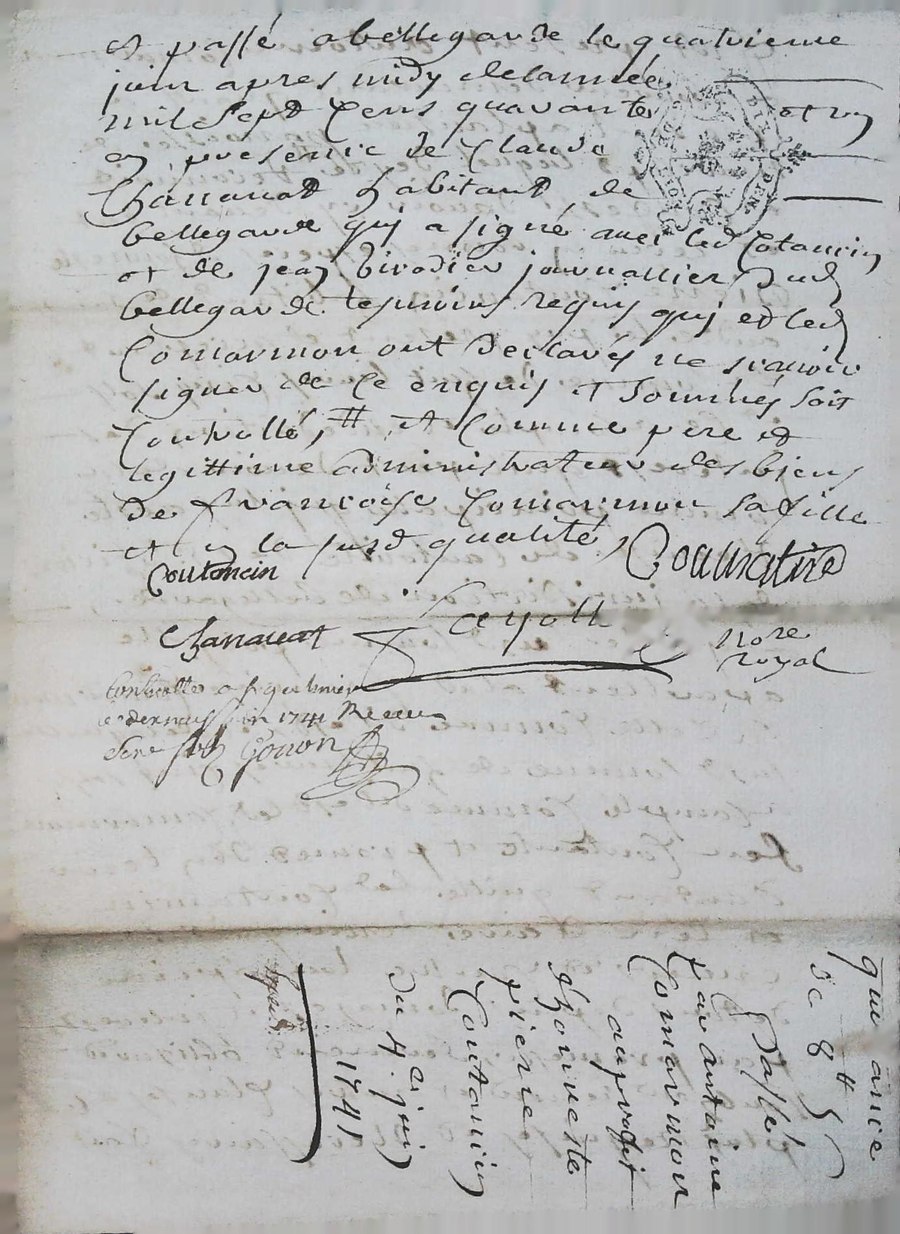 et passé a bellegarde le quatrieme
juin apres midy de lannée
mil sept Cens quarante et un
en presence de Claude
Chanavat habitant de
bellegarde qui a signé avec led Cotancin
et de jean birodier journallier dud
bellegarde temoins requis qui et led
Comarmon ont declarés ne scavoir
signer de ce enquis et sommés soit
Controllé, # et Comme pere et
legittime administrateur des biens
de françoise Comarmon sa fille
et en la susd qualité,
Coutancin
Chanavat fayolle Nore
royal
Controllé a
juin 1741 Receu
sols Gonon
quittance
de 8# s
Passée
par antoine
Comarmon
au proffit
d'honneste
pierre
Coutancin
du 4.e juin
1741